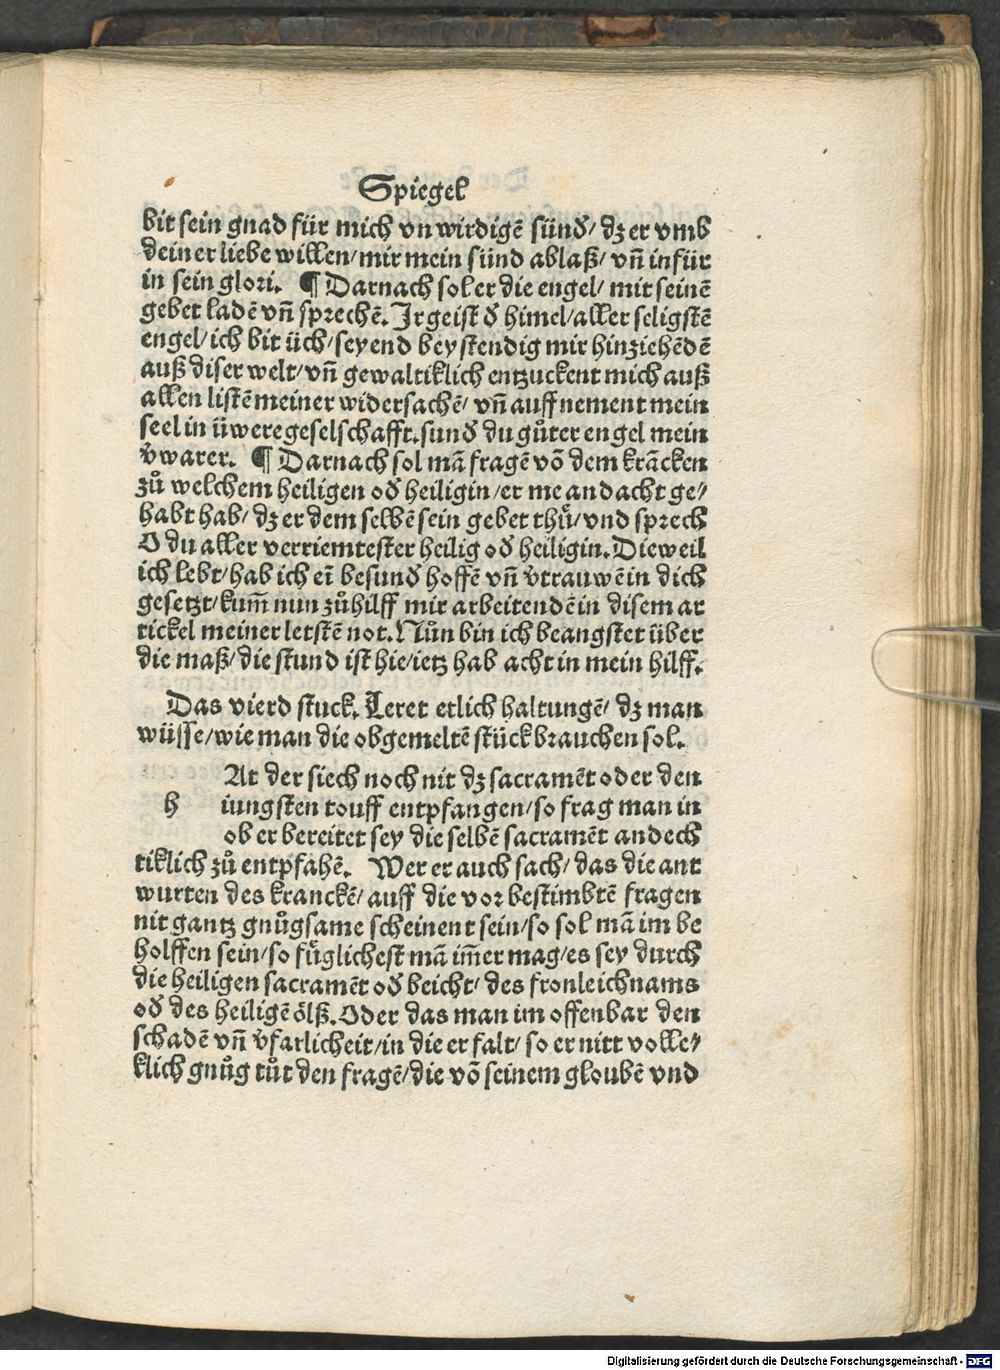 Spiegel
bit sein gnad für mich vnwirdigē sünð/ dz er vmb
deiner liebe willen/ mir mein sünd ablaß/ vñ infür
in sein glori. ¶ Darnach sol er die engel/ mit seinē
gebet ladē vñ sprechē. Ir geist ð himel/ aller seligstē
engel/ ich bit üch/ seyend beystendig mir hinziehēdē
auß diser welt/ vñ gewaltiklich entzuckent mich auß
allen listē meiner widersachē/ vñ auffnement mein
seel in üwere geselschafft. sunð du gůter engel mein
v̄warer. ¶ Darnach sol mā fragē vō dem krācken
zů welchem heiligen oð heiligin/ er me andacht ge/
habt hab/ dz er dem selbē sein gebet thů/ vnd sprech
O du aller verriemtester heilig oð heiligin. Dieweil
ich lebt/ hab ich eī besunð hoffē vñ v̄trauwē in dich
gesetzt/ kum̄ nun zů hilff mir arbeitendē in disem ar
tickel meiner letstē not. Nůn bin ich beangstet über
die maß/ die stund ist hie/ ietz hab acht in mein hilff.
Das vierd stuck. Leret etlich haltungē/ dz man
wüsse/ wie man die obgemeltē stück brauchen sol.
At der siech noch nit dz sacramēt oder den
h iungsten touff entpfangen/ so frag man in
ob er bereitet sey die selbē sacramēt andech
tiklich zů entpfahē. Wer er auch sach/ das die ant
wurten des kranckē/ auff die vor bestimbtē fragen
nit gantz gnůgsame scheinent sein/ so sol mā im be
holffen sein/ so fůglichest mā im̄er mag/ es sey durch
die heiligen sacramēt oð beicht/ des fronleichnams
oð des heiligē ölß. Oder das man im offenbar den
schadē vñ v̄farlicheit/ in die er falt/ so er nitt volle/
klich gnůg tůt den fragē/ die vō seinem gloubē vnd
Digitalisierung gefördert durch die Deutsche Forschungsgemeinschaft - DFG